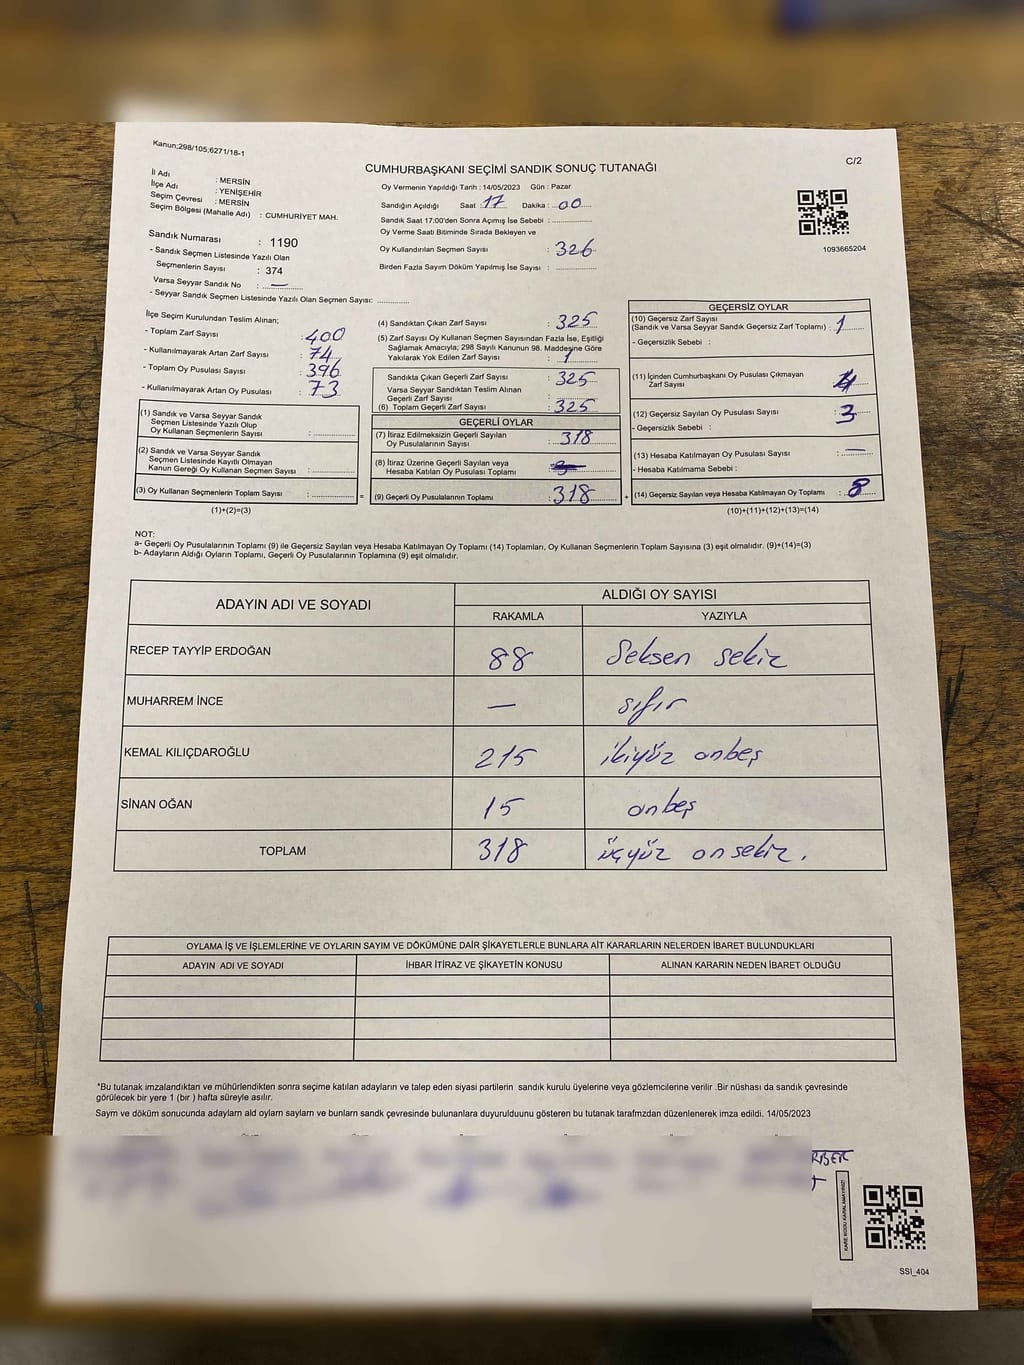 Kanun;298/105;6271/18-1
CUMHURBAŞKANI SEÇİMİ SANDIK SONUÇ TUTANAĞI
C/2
İl Adı : MERSİN
İlçe Adı : YENİŞEHİR
Seçim Çevresi : MERSİN
Seçim Bölgesi (Mahalle Adı) : CUMHURİYET MAH.
Sandık Numarası : 1190
- Sandık Seçmen Listesinde Yazılı Olan
Seçmenlerin Sayısı : 374
Varsa Seyyar Sandık No : —
- Seyyar Sandık Seçmen Listesinde Yazılı Olan Seçmen Sayısı: ............
Oy Vermenin Yapıldığı Tarih : 14/05/2023 Gün : Pazar
Sandığın Açıldığı Saat : 17 Dakika : 00
Sandık Saat 17:00'den Sonra Açımış İse Sebebi : ..............
Oy Verme Saati Bitiminde Sırada Bekleyen ve
Oy Kullandırılan Seçmen Sayısı : 326
Birden Fazla Sayım Döküm Yapılmış İse Sayısı : ..............
1093665204
İlçe Seçim Kurulundan Teslim Alınan;
- Toplam Zarf Sayısı : 400
- Kullanılmayarak Artan Zarf Sayısı : 74
- Toplam Oy Pusulası Sayısı : 396
- Kullanılmayarak Artan Oy Pusulası : 73
(1) Sandık ve Varsa Seyyar Sandık
Seçmen Listesinde Yazılı Olup
Oy Kullanan Seçmenlerin Sayısı : ..............
(2) Sandık ve Varsa Seyyar Sandık
Seçmen Listesinde Kayıtlı Olmayan
Kanun Gereği Oy Kullanan Seçmen Sayısı : ..............
(3) Oy Kullanan Seçmenlerin Toplam Sayısı : .............. =
(1)+(2)=(3)
(4) Sandıktan Çıkan Zarf Sayısı : 325
(5) Zarf Sayısı Oy Kullanan Seçmen Sayısından Fazla İse, Eşitliği
Sağlamak Amacıyla; 298 Sayılı Kanunun 98. Maddesine Göre
Yakılarak Yok Edilen Zarf Sayısı : 1
Sandıkta Çıkan Geçerli Zarf Sayısı : 325
Varsa Seyyar Sandıktan Teslim Alınan
Geçerli Zarf Sayısı : ..............
(6) Toplam Geçerli Zarf Sayısı : 325
GEÇERLİ OYLAR
(7) İtiraz Edilmeksizin Geçerli Sayılan
Oy Pusulalarının Sayısı : 318
(8) İtiraz Üzerine Geçerli Sayılan veya
Hesaba Katılan Oy Pusulası Toplamı :
(9) Geçerli Oy Pusulalarının Toplamı : 318 +
GEÇERSİZ OYLAR
(10) Geçersiz Zarf Sayısı
(Sandık ve Varsa Seyyar Sandık Geçersiz Zarf Toplamı) : 1
- Geçersizlik Sebebi :
(11) İçinden Cumhurbaşkanı Oy Pusulası Çıkmayan
Zarf Sayısı : 4
(12) Geçersiz Sayılan Oy Pusulası Sayısı : 3
- Geçersizlik Sebebi :
(13) Hesaba Katılmayan Oy Pusulası Sayısı : —
- Hesaba Katılmama Sebebi :
(14) Geçersiz Sayılan veya Hesaba Katılmayan Oy Toplamı : 8
(10)+(11)+(12)+(13)=(14)
NOT:
a- Geçerli Oy Pusulalarının Toplamı (9) ile Geçersiz Sayılan veya Hesaba Katılmayan Oy Toplamı (14) Toplamları, Oy Kullanan Seçmenlerin Toplam Sayısına (3) eşit olmalıdır. (9)+(14)=(3)
b- Adayların Aldığı Oyların Toplamı, Geçerli Oy Pusulalarının Toplamına (9) eşit olmalıdır.
ADAYIN ADI VE SOYADI
ALDIĞI OY SAYISI
RAKAMLA YAZIYLA
RECEP TAYYİP ERDOĞAN 88 Seksen sekiz
MUHARREM İNCE — sıfır
KEMAL KILIÇDAROĞLU 215 ikiyüz onbeş
SİNAN OĞAN 15 onbeş
TOPLAM 318 üçyüz onsekiz.
OYLAMA İŞ VE İŞLEMLERİNE VE OYLARIN SAYIM VE DÖKÜMÜNE DAİR ŞİKAYETLERLE BUNLARA AİT KARARLARIN NELERDEN İBARET BULUNDUKLARI
ADAYIN ADI VE SOYADI İHBAR İTİRAZ VE ŞİKAYETİN KONUSU ALINAN KARARIN NEDEN İBARET OLDUĞU
*Bu tutanak imzalandıktan ve mühürlendikten sonra seçime katılan adayların ve talep eden siyasi partilerin sandık kurulu üyelerine veya gözlemcilerine verilir .Bir nüshası da sandık çevresinde
görülecek bir yere 1 (bir ) hafta süreyle asılır.
Sayım ve döküm sonucunda adayların ald oyların sayların ve bunların sandk çevresinde bulunanlara duyurulduunu gösteren bu tutanak tarafmzdan düzenlenerek imza edildi. 14/05/2023
KARE KODU KARALAMAYINIZ!
SSI_404